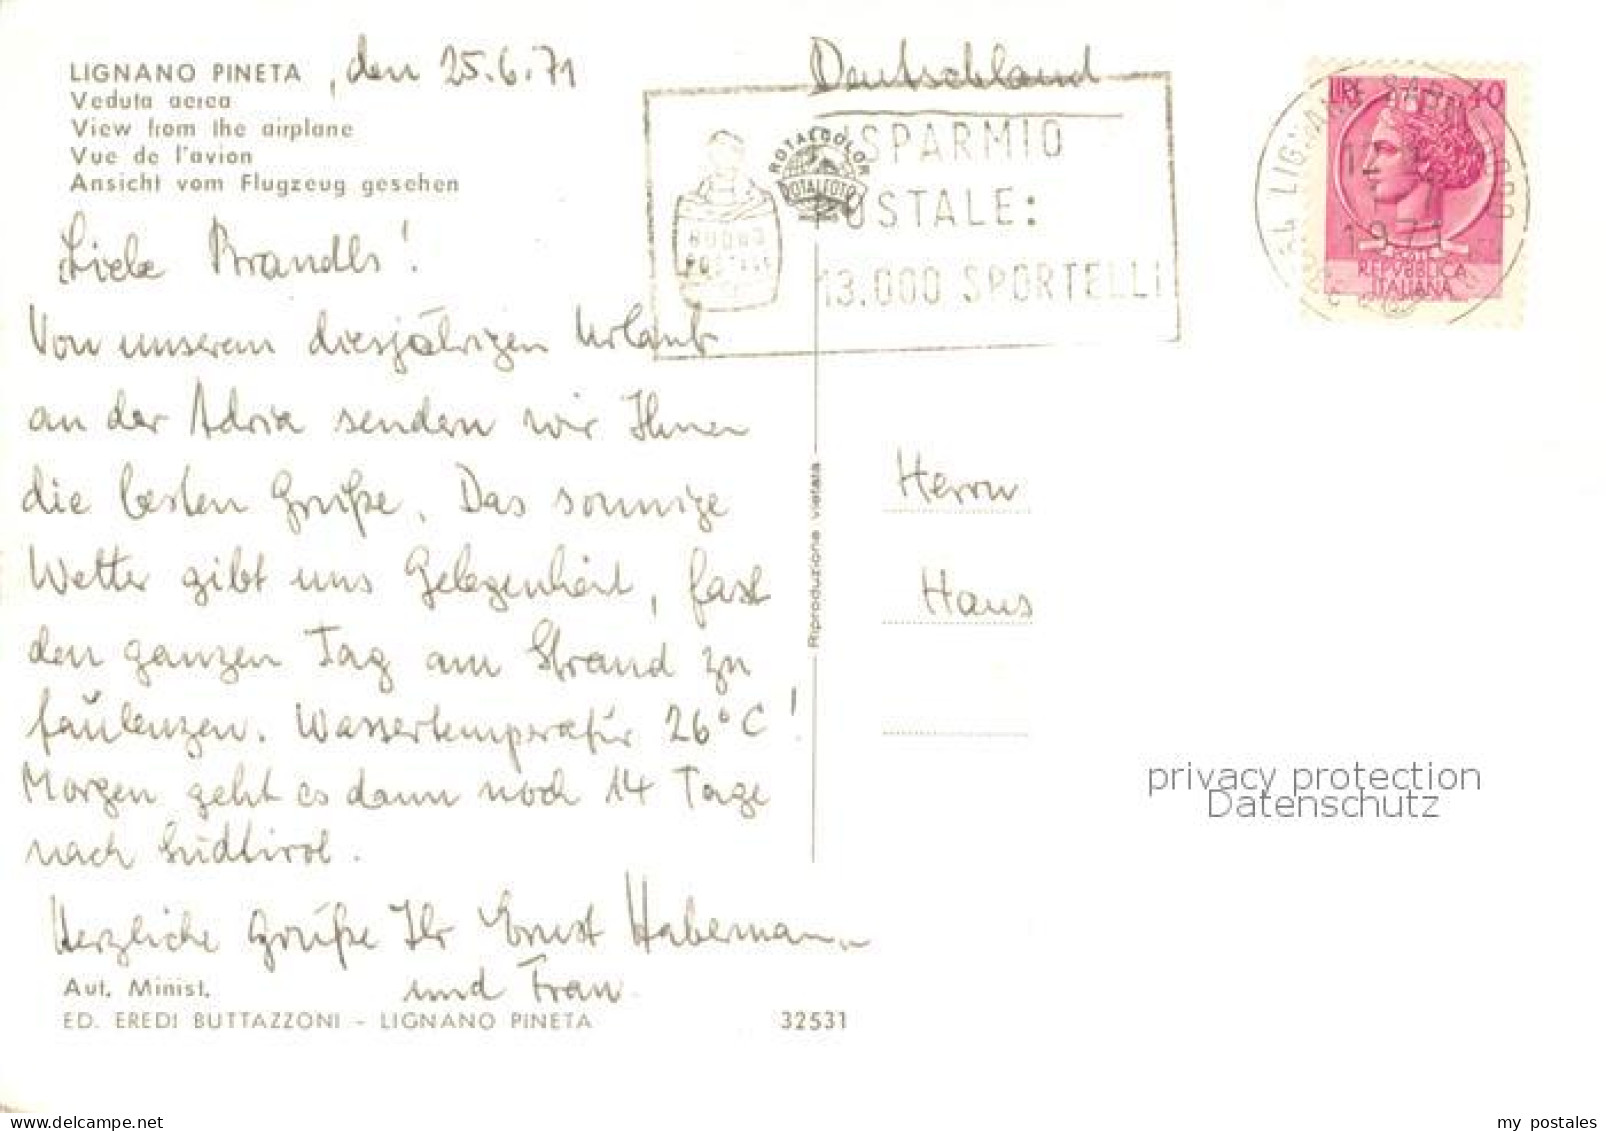 LIGNANO PINETA, den 25.6.71
Veduta aerea
View from the airplane
Vue de l'avion
Ansicht vom Flugzeug gesehen
Liebe Brandls!
Von unserem diesjährigen Urlaub
an der Adria senden wir Ihnen
die besten Grüße. Das sonnige
Wetter gibt uns Gelegenheit, fast
den ganzen Tag am Strand zu
faulenzen. Wassertemperatur 26°C!
Morgen geht es dann noch 14 Tage
nach Südtirol.
Herzliche Grüße Ihr Ernst Habermann
und Frau
Aut. Minist.
ED. EREDI BUTTAZZONI - LIGNANO PINETA 32531
Riproduzione vietata
ROTALCOLOR
ROTALFOTO
Deutschland
RISPARMIO
POSTALE:
13.000 SPORTELLI
BUONO
POSTALE
LIRE 40
LIGNANO SABBIADORO
1971
POSTE
REPVBBLICA
ITALIANA
Herrn
Hans
privacy protection
Datenschutz
my postales
delcampe.net